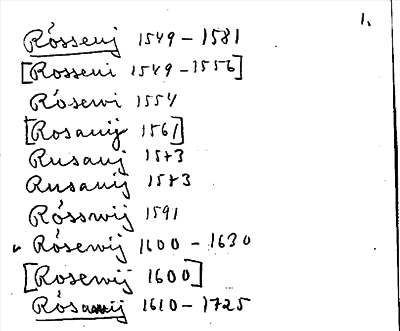 1.
Róssenij 1549 – 1581
[Rosseni 1549 – 1556]
Rósewi 1554
[Rosanij 1561]
Rusanj 1573
Rusanij 1573
Rósswij 1591
Rósewij 1600 – 1630
[Rosewij 1600]
Rósanij 1610 – 1725